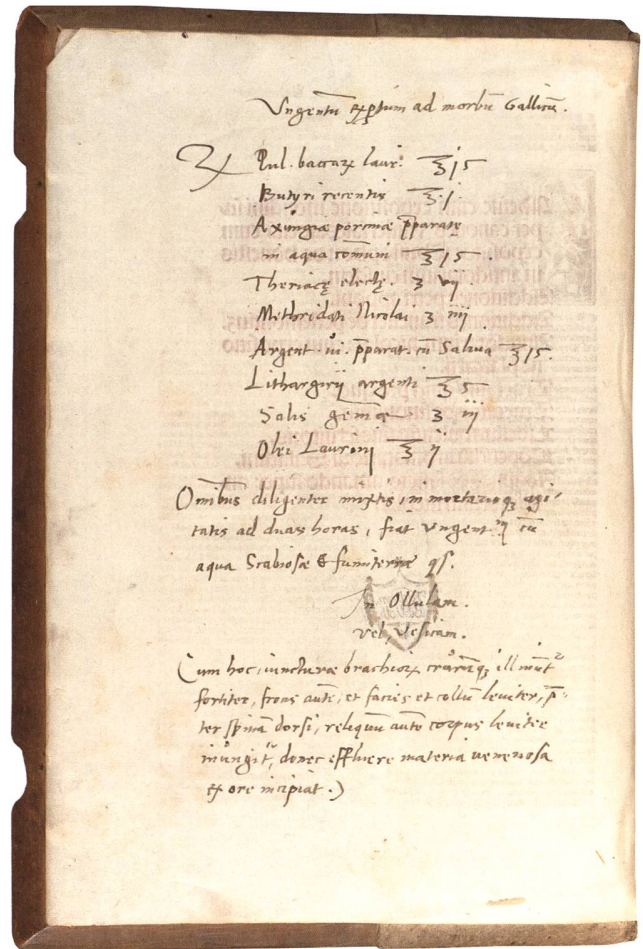 Vngentũ exptum ad morbũ Gallicũ.
℞ Pul. baccarꝝ lauri ℥ j s
Butyri recentis ℥. j
Axungiæ porcinæ p̃paratę
in aqua com̃uni ℥ j s
Theriacę electę. ʒ vij.
Methridati Nicolai ʒ iiij
Argent. ui. p̃parat. cũ Saliua ℥ j s.
Lithargirij argenti ℥ s
Salis gem̃æ ʒ iij
Olei Laurini ℥ ij
Om̃ibus diligenter mixtis, in mortarioqꝫ agi-
tatis ad duas horas, fiat vngent cũ
aqua Scabiosæ & fumiterræ qs.
In Ollulam.
vel, Vesicam.
Cum hoc, iuncturæ brachiorꝝ crurũqꝫ
fortiter, frons autẽ, et facies et collũ leuiter, p̃-
ter spinã dorsi, reliquũ autẽ corpus leuiter
inũngit, donec effluere materia uenenosa
ex ore incipiat.)